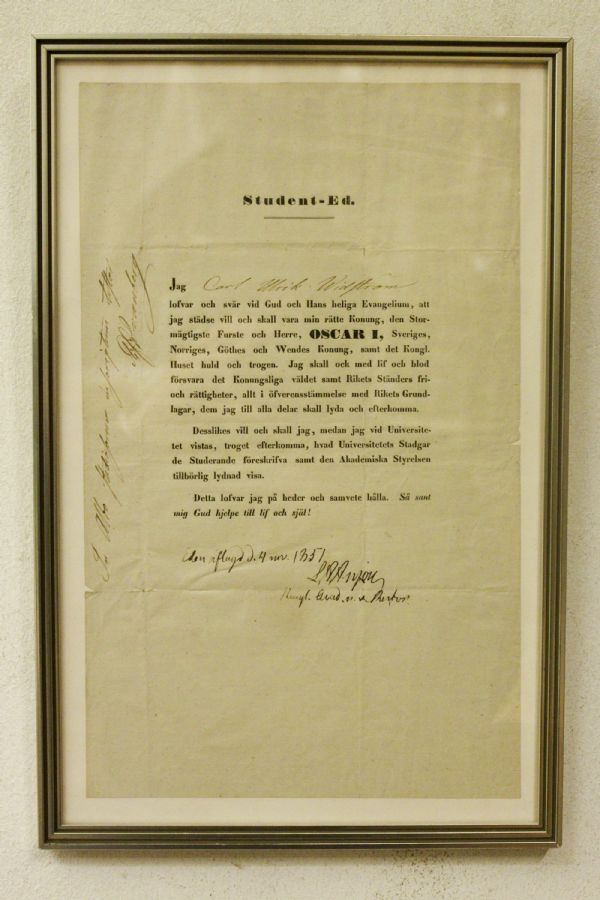 Student-Ed.
Jag Carl Ulrik Widström
lofvar och svär vid Gud och Hans heliga Evangelium, att
jag städse vill och skall vara min rätte Konung, den Stor-
mägtigste Furste och Herre, OSCAR I, Sveriges,
Norriges, Göthes och Wendes Konung, samt det Kongl.
Huset huld och trogen. Jag skall ock med lif och blod
försvara det Konungsliga väldet samt Rikets Ständers fri-
och rättigheter, allt i öfverensstämmelse med Rikets Grund-
lagar, dem jag till alla delar skall lyda och efterkomma.
Desslikes vill och skall jag, medan jag vid Universite-
tet vistas, troget efterkomma, hvad Universitetets Stadgar
de Studerande föreskrifva samt den Akademiska Styrelsen
tillbörlig lydnad visa.
Detta lofvar jag på heder och samvete hålla. Så sant
mig Gud hjelpe till lif och själ!
d. 4 nov. 1851
Rector